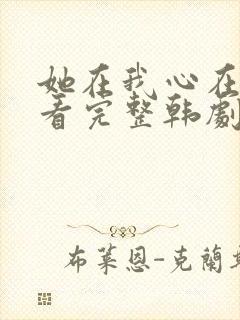 她在我心在
看完整韩劇
布莱恩-克蘭